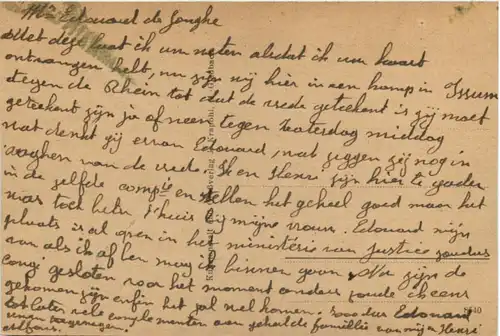 Mr Edouard de Jonghe
Met deze laat ik u weten alsdat ik uw kaart
ontvangen hebt, nu zijn wij hier in een kamp in Issum
tegen de Rhein tot dat de vrede geteekent is zij moet
geteekent zijn ja of neen tegen Zaterdag middag
wat denkt gij ervan Edouard, wat zeggen zij nog in
van de vrede. Ik en Henri zijn hier te gader
in de zelfde comp en stellen het geheel goed maar het
was toch beter t'huis bij mijne vrouw. Edouard mijn
plaats is al open in het ministerie van Justice
van als ik af ben mag ik binnen gaan. Nu zijn de
congé gesloten voor het moment anders zoude ik eens
gekomen zijn enfin het zal wel komen. Edouard
tot later vele complementen aan geheel de famille van mij en Henri
Alfons.